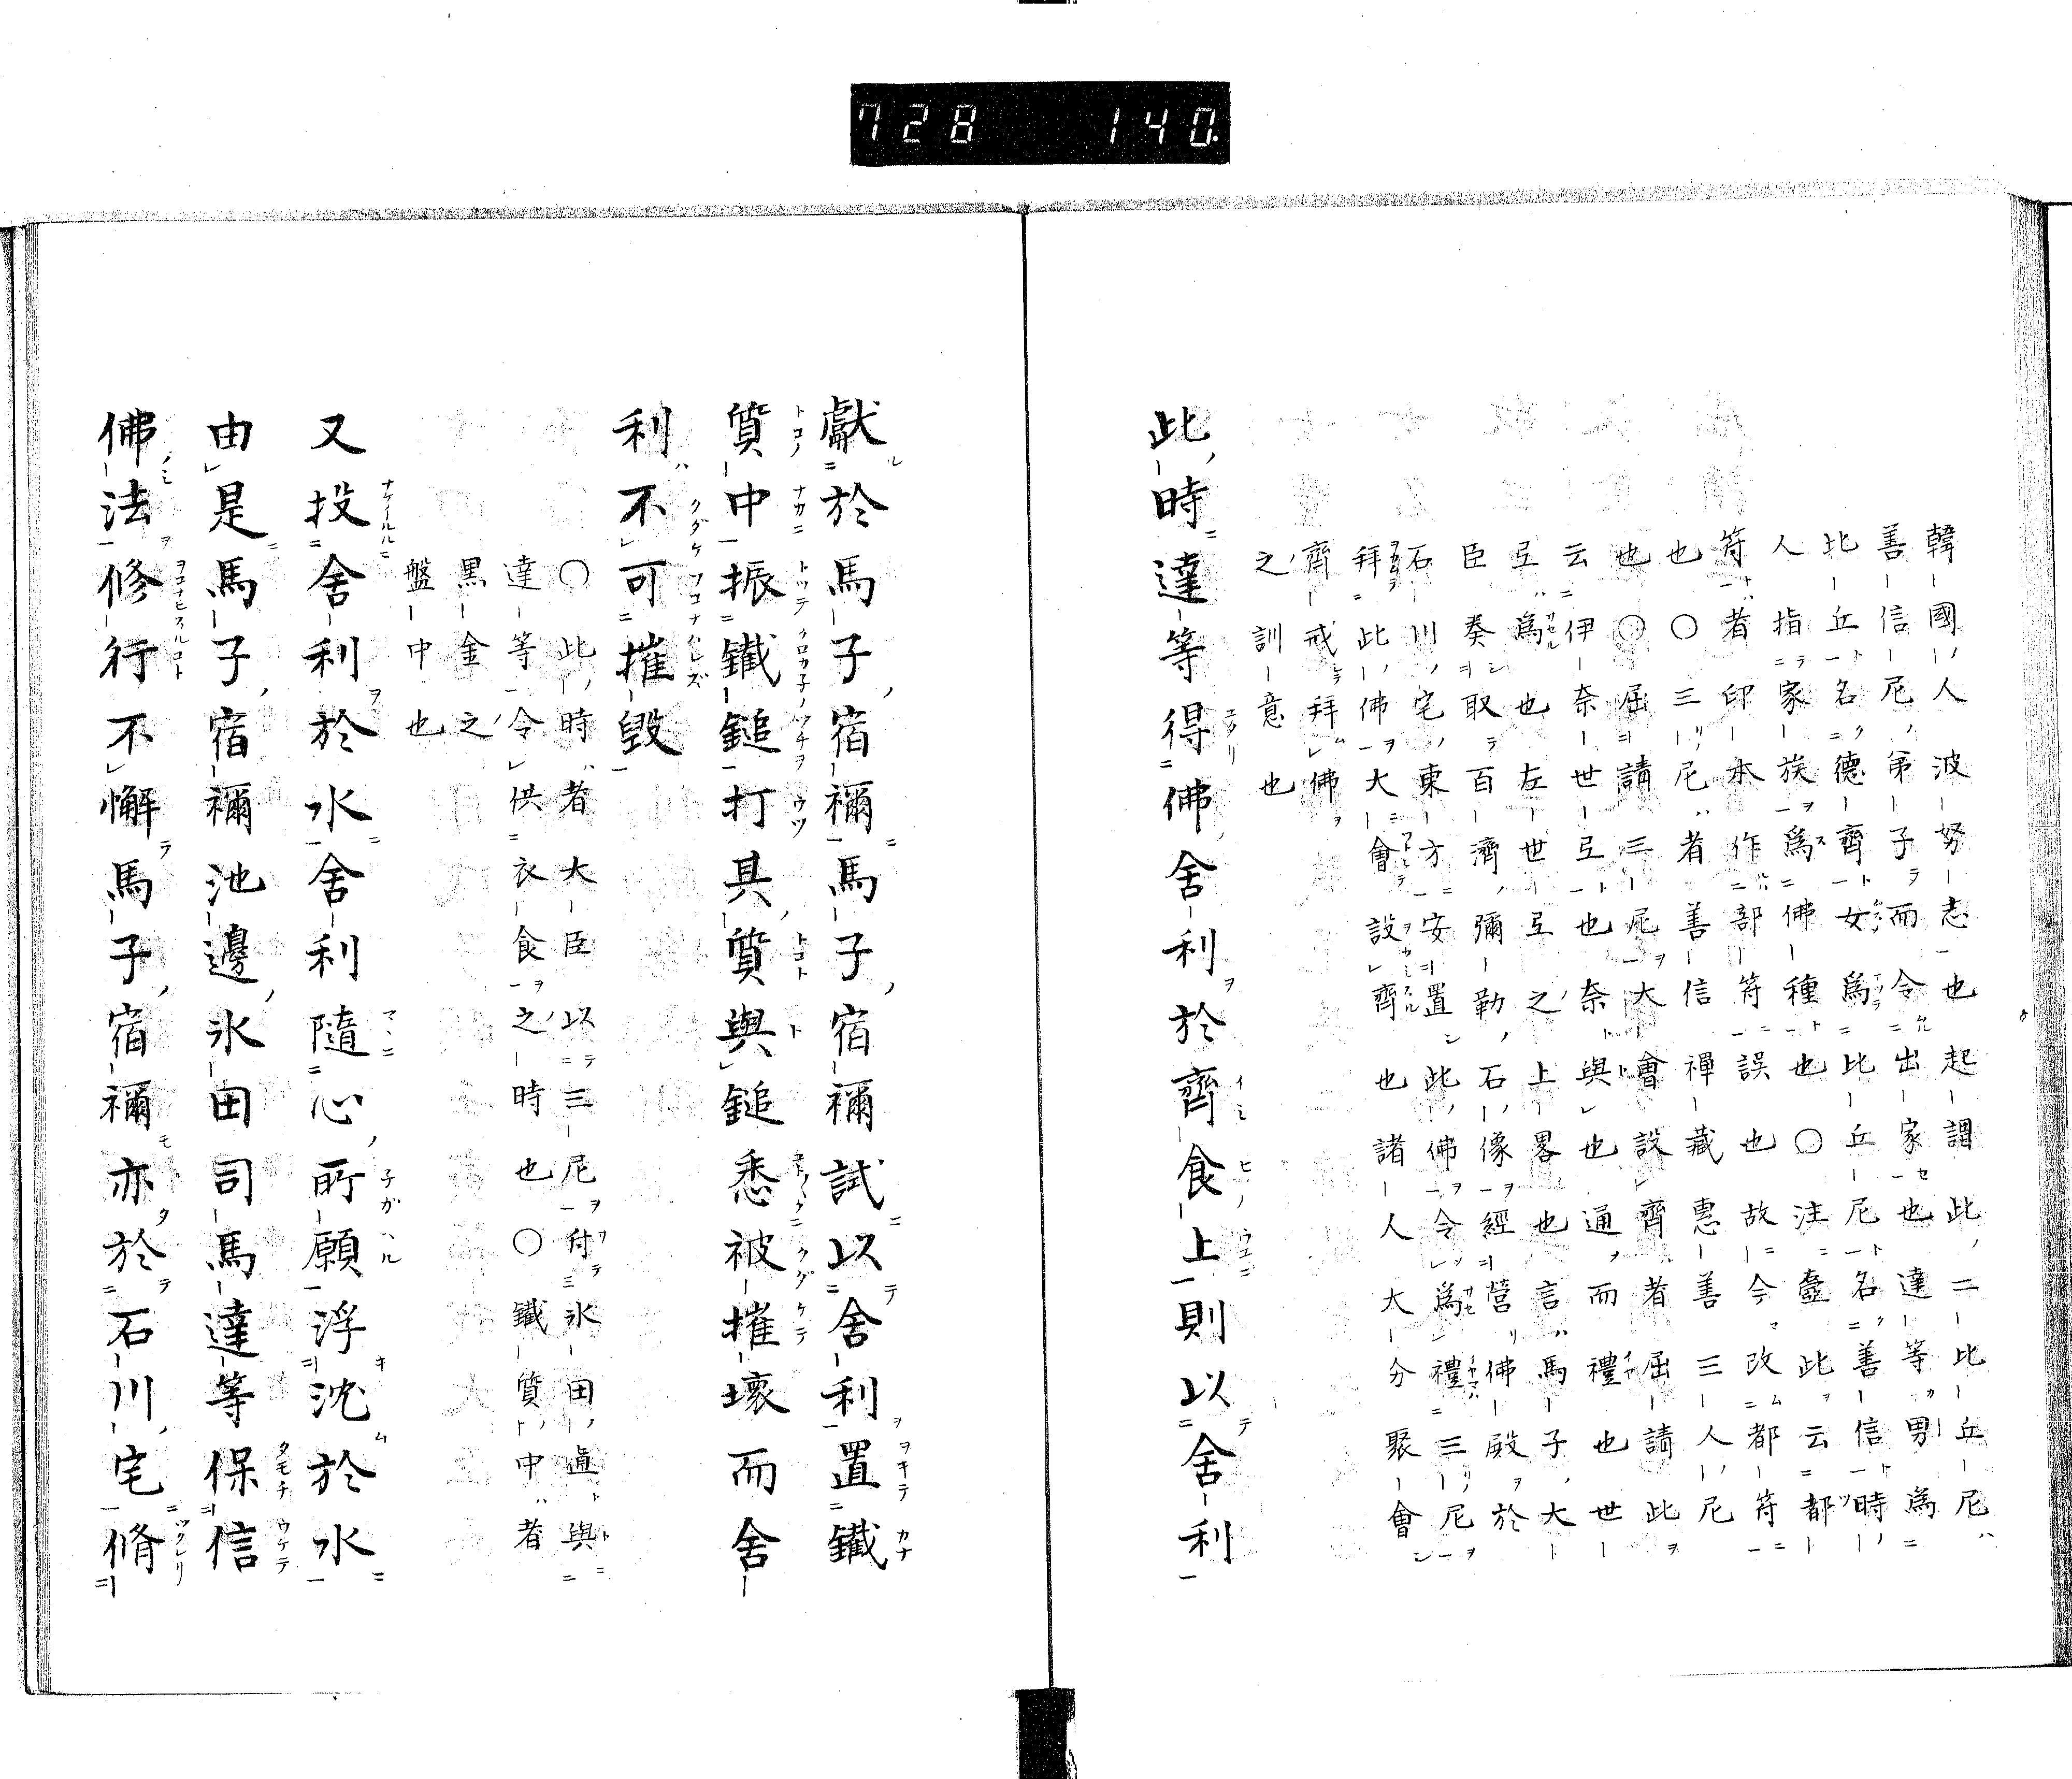 728 140
韓國人波努志也起謂此二比丘尼
善信尼弟子而令出家也達等男爲
比丘名德齊女爲比丘尼名善信時
人指家族爲佛種也〇注蠹此云都
符者印本作部符誤也故今改都符
也〇三尼者善信禪藏惠善三人尼
也〇屈請三尼大會設齊者屈請此
云伊奈世弖也奈與也通而禮也世
弖爲也左世弖之上畧也言馬子大
臣奏取百濟彌勒石像經營佛殿於
石川宅東方安置此佛令爲禮三尼
拜此佛大會設齊也諸人大分聚會
齊戒拜佛
之訓意也
此時達等得佛舍利於齊食上則以舍利
獻於馬子宿禰馬子宿禰試以舍利置鐵
質中振鐵鎚打具質與鎚悉被摧壞而舍
利不可摧毀
〇此時者大臣以三尼付氷田直與
達等令供衣食之時也〇鐵質中者
黑金之
盤中也
又投舍利於水舍利隨心所願浮沈於水
由是馬子宿禰池邊氷田司馬達等保信
佛法修行不懈馬子宿禰亦於石川宅脩